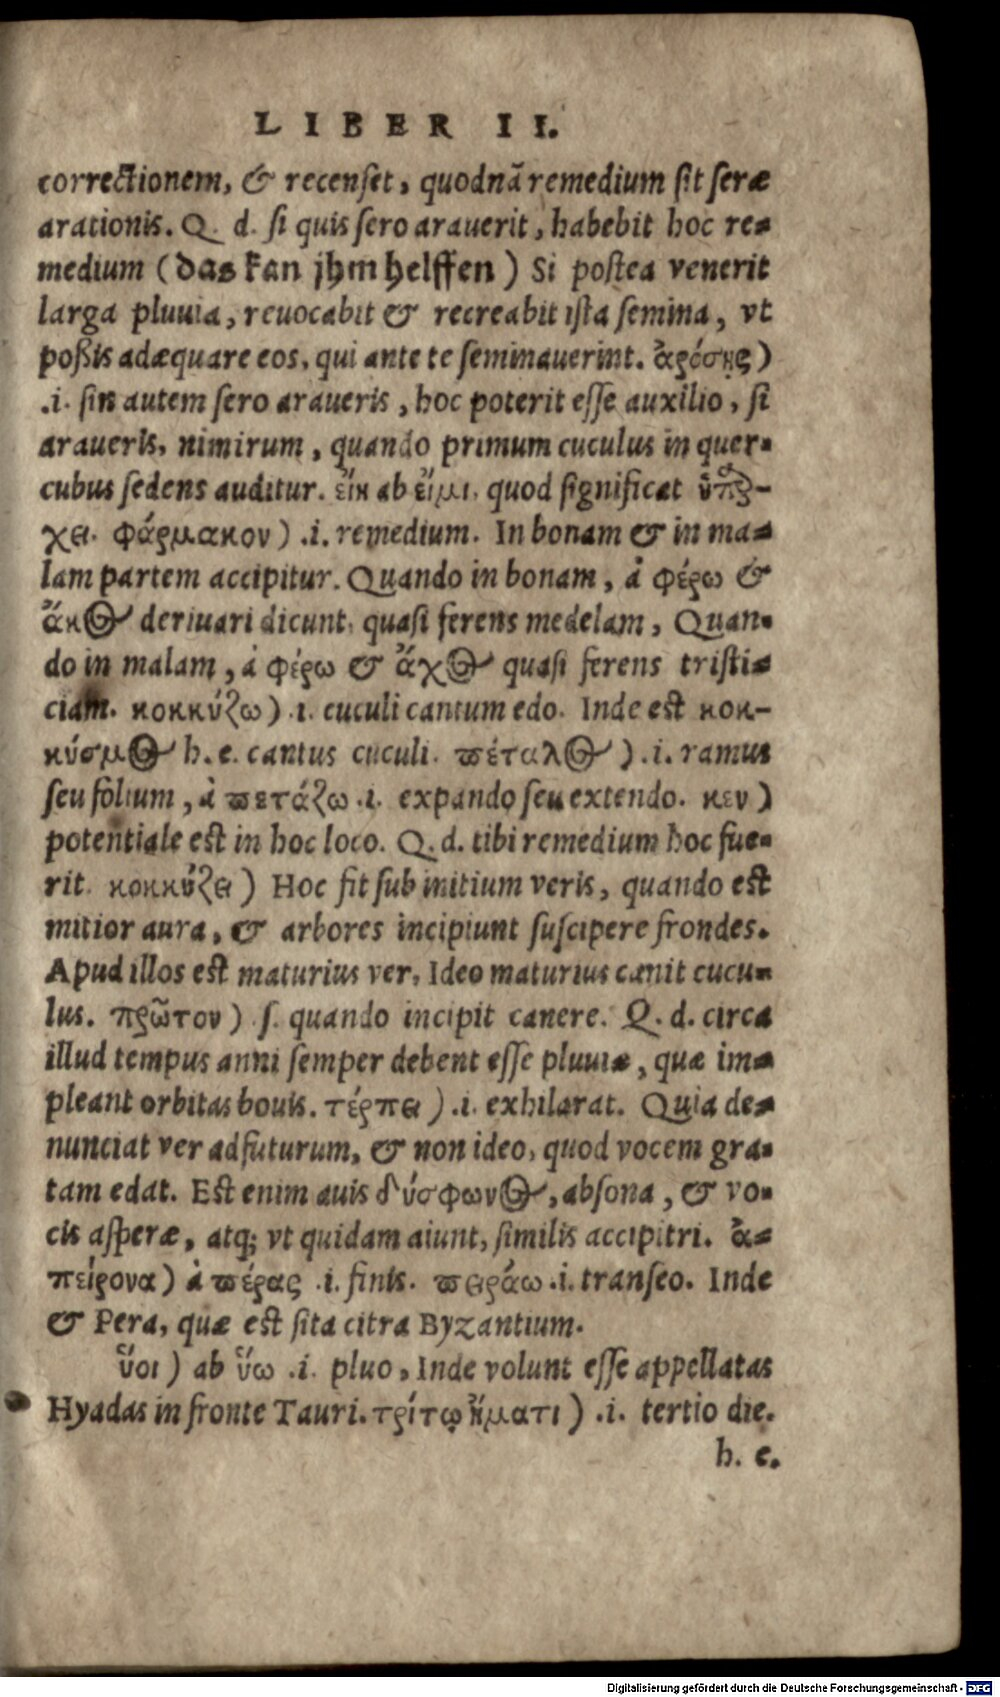 LIBER II.
correctionem, & recenset, quodnã remedium sit seræ
arationis. Q. d. si quis sero arauerit, habebit hoc re-
medium (das kan jhm helffen) Si postea venerit
larga pluuia, reuocabit & recreabit ista semina, vt
poßis adæquare eos, qui ante te seminauerint. ἀρόσῃς)
.i. sin autem sero araueris, hoc poterit esse auxilio, si
araueris, nimirum, quando primum cuculus in quer-
cubus sedens auditur. εἴη ab εἴμι, quod significat ὑπάρ-
χει. φάρμακον) .i. remedium. In bonam & in ma-
lam partem accipitur. Quando in bonam, à φέρω &
ἄκος deriuari dicunt, quasi ferens medelam, Quan-
do in malam, à φέρω & ἄχος quasi ferens tristi-
ciam. κοκκύζω) .i. cuculi cantum edo. Inde est κοκ-
κύσμος h. e. cantus cuculi. πέταλος) .i. ramus
seu folium, à πετάζω .i. expando seu extendo. κεν)
potentiale est in hoc loco. Q. d. tibi remedium hoc fue-
rit. κοκκύζει) Hoc fit sub initium veris, quando est
mitior aura, & arbores incipiunt suscipere frondes.
Apud illos est maturius ver, Ideo maturius canit cucu-
lus. πρῶτον) s. quando incipit canere. Q. d. circa
illud tempus anni semper debent esse pluuiæ, quæ im-
pleant orbitas bouis. τέρπει) .i. exhilarat. Quia de-
nunciat ver adfuturum, & non ideo, quod vocem gra-
tam edat. Est enim auis δύσφωνος, absona, & vo-
cis asperæ, atq; vt quidam aiunt, similis accipitri. ἀ-
πείρονα) à πέρας .i. finis. περάω .i. transeo. Inde
& Pera, quæ est sita citra Byzantium.
ὕοι) ab ὕω .i. pluo, Inde volunt esse appellatas
Hyadas in fronte Tauri. τρίτῳ ἤματι) .i. tertio die.
h. e.
Digitalisierung gefördert durch die Deutsche Forschungsgemeinschaft - DFG